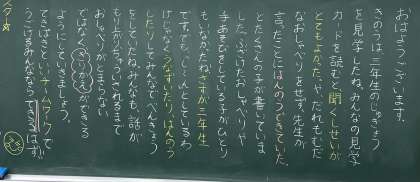 おはようございます。
きのうは、三年生のじゅぎょう
を見学したね。みんなの見学
カードを読むと「聞くしせいが
とてもよかった。や「だれもむだ
なおしゃべりをせず、先生が
言ったことにはんのうできていた。
とたくさんの子が書いていま
した。ふざけたおしゃべりや
手あそびをしている子がひとり
もいなかったね。さすが三年生
です。でも、じーんとしているわ
けじゃなくうなずいたり、はんのう
したりしてみんなでべんきょう
をしていたね。みんなも、話が
もりあがりちゅういされるまで
おしゃべりが止まらない
ではなく、きりかえができる
ようにしていきましょう。
かけ声とチームワークで
うごけるみんななら できるはず!